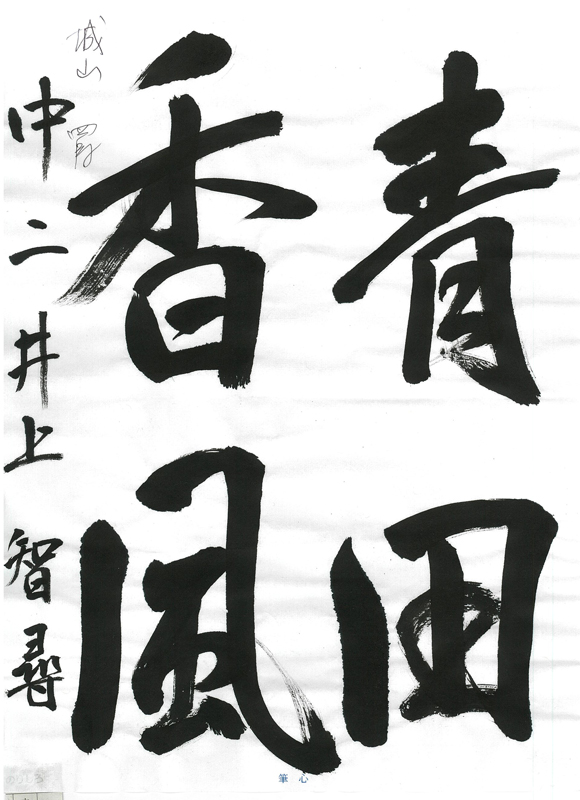 青田
香風
城山
中二井上智尋
筆心